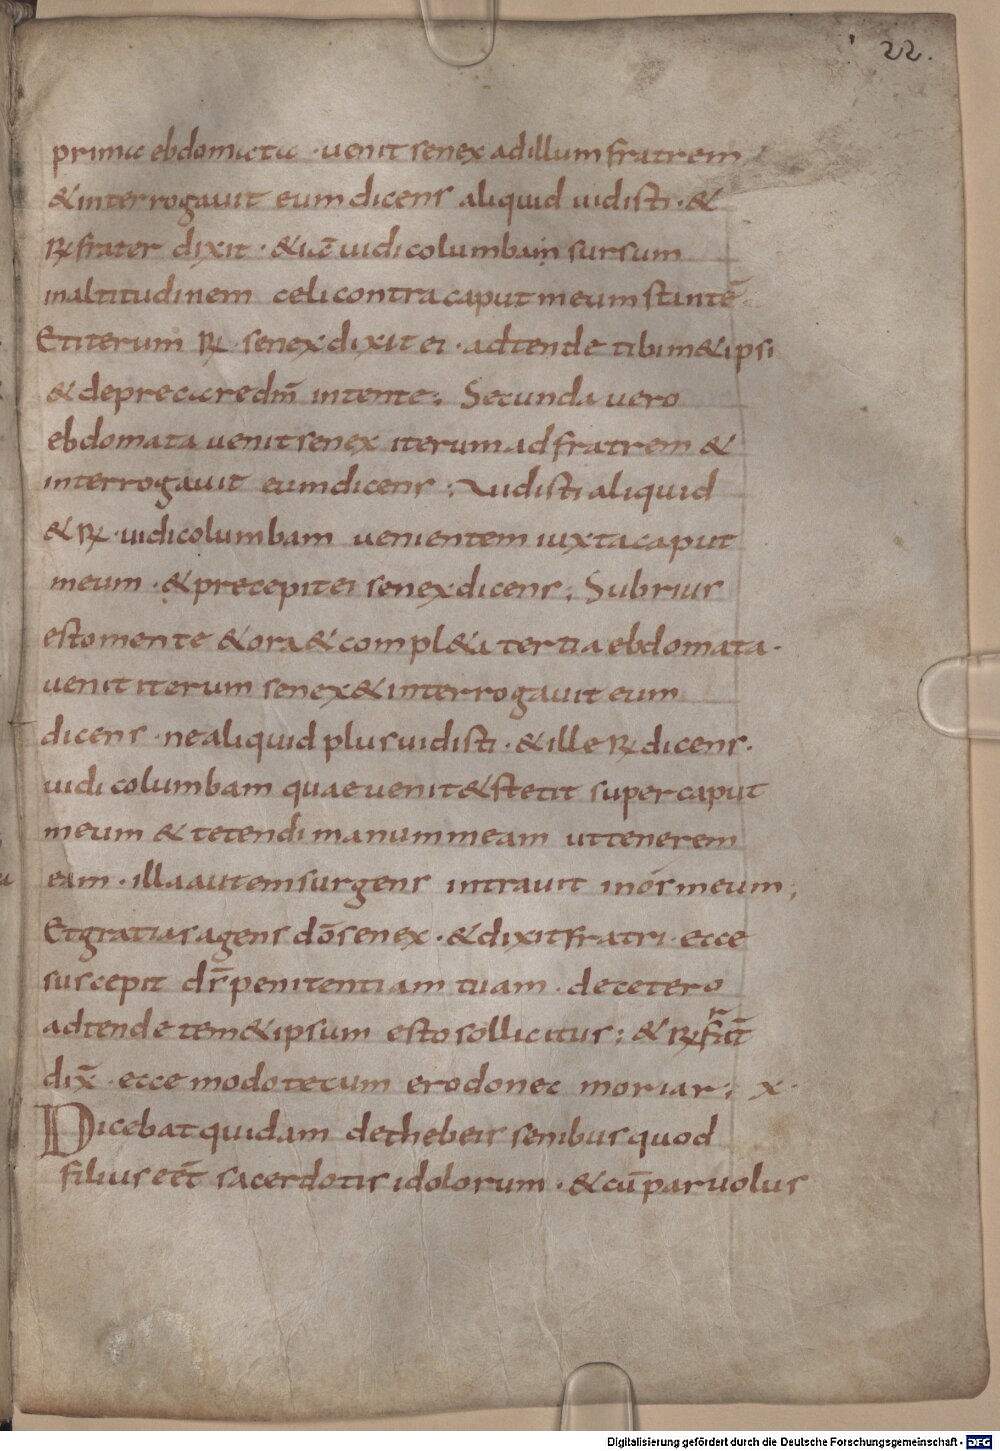 22.
prima ebdomata · uenit senex ad illum fratrem
& interrogauit eum dicens aliquid uidisti · &
R frater dixit · & icē uidi columbam sursum
in altitudinem celi contra caput meum stantē
Et iterum R senex dixit ei · adtende tibim&ipsi
& deprecare dm̄ intente; Secunda uero
ebdomata uenit senex iterum ad fratrem &
interrogauit eum dicens; Uidisti aliquid
& R · uidi columbam uenientem iuxta caput
meum · & precepit ei senex dicens; Subrius
esto mente & ora & compl&a tertia ebdomata ·
uenit iterum senex & interrogauit eum
dicens · ne aliquid plus uidisti · & ille R dicens ·
uidi columbam quae uenit & stetit super caput
meum & tetendi manum meam ut tenerem
eam · illa autem surgens intrauit in ós meum;
Et gratias agens dō senex · & dixit fratri · ecce
suscepit ds̄ penitentiam tuam · de cetero
adtende tem&ipsum esto sollicitus; & R frat̄
dix̄ · ecce modo tecum ero donec moriar; x ·
Dicebat quidam de thebeis senibus quod
filius eēt sacerdotis idolorum · & cū paruolus
Digitalisierung gefördert durch die Deutsche Forschungsgemeinschaft - DFG